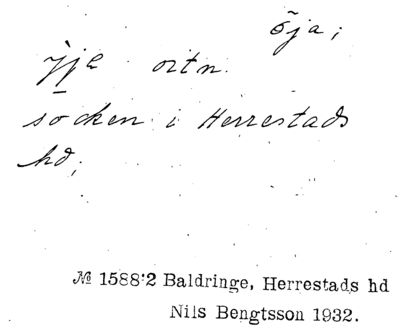 öja;
ỳje ortn.
socken i Herrestads
hd;
№ 1588:2 Baldringe, Herrestads hd
Nils Bengtsson 1932.